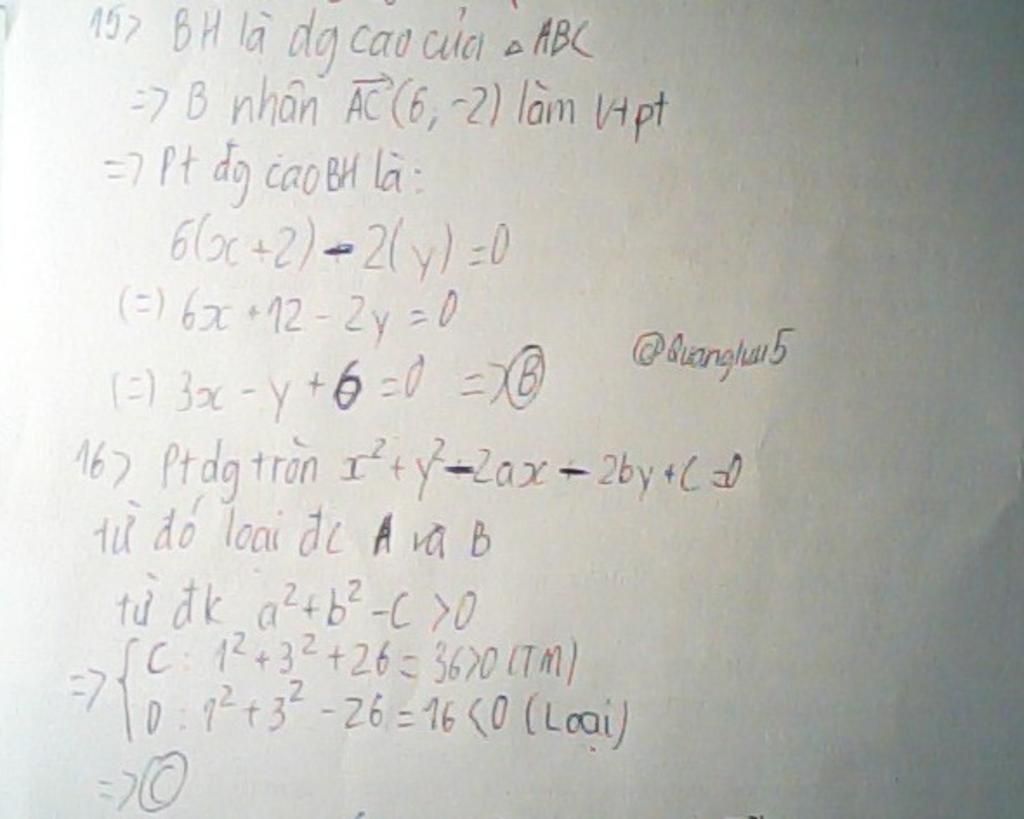 15> BH là đg cao của △ ABC
=> B nhân AC→(6, -2) làm vtpt
=> Pt đg cao BH là:
6(x + 2) - 2(y) = 0
(=) 6x + 12 - 2y = 0
(=) 3x - y + 6 = 0 => Ⓑ
@Quangluu5
16> Ptdg tròn x² + y² - 2ax - 2by + C = 0
từ đó loại đc A và B
từ đk a² + b² - C > 0
=> { C : 1² + 3² + 26 = 36 > 0 (TM)
D : 1² + 3² - 26 = 16 < 0 (Loại)
=> Ⓒ